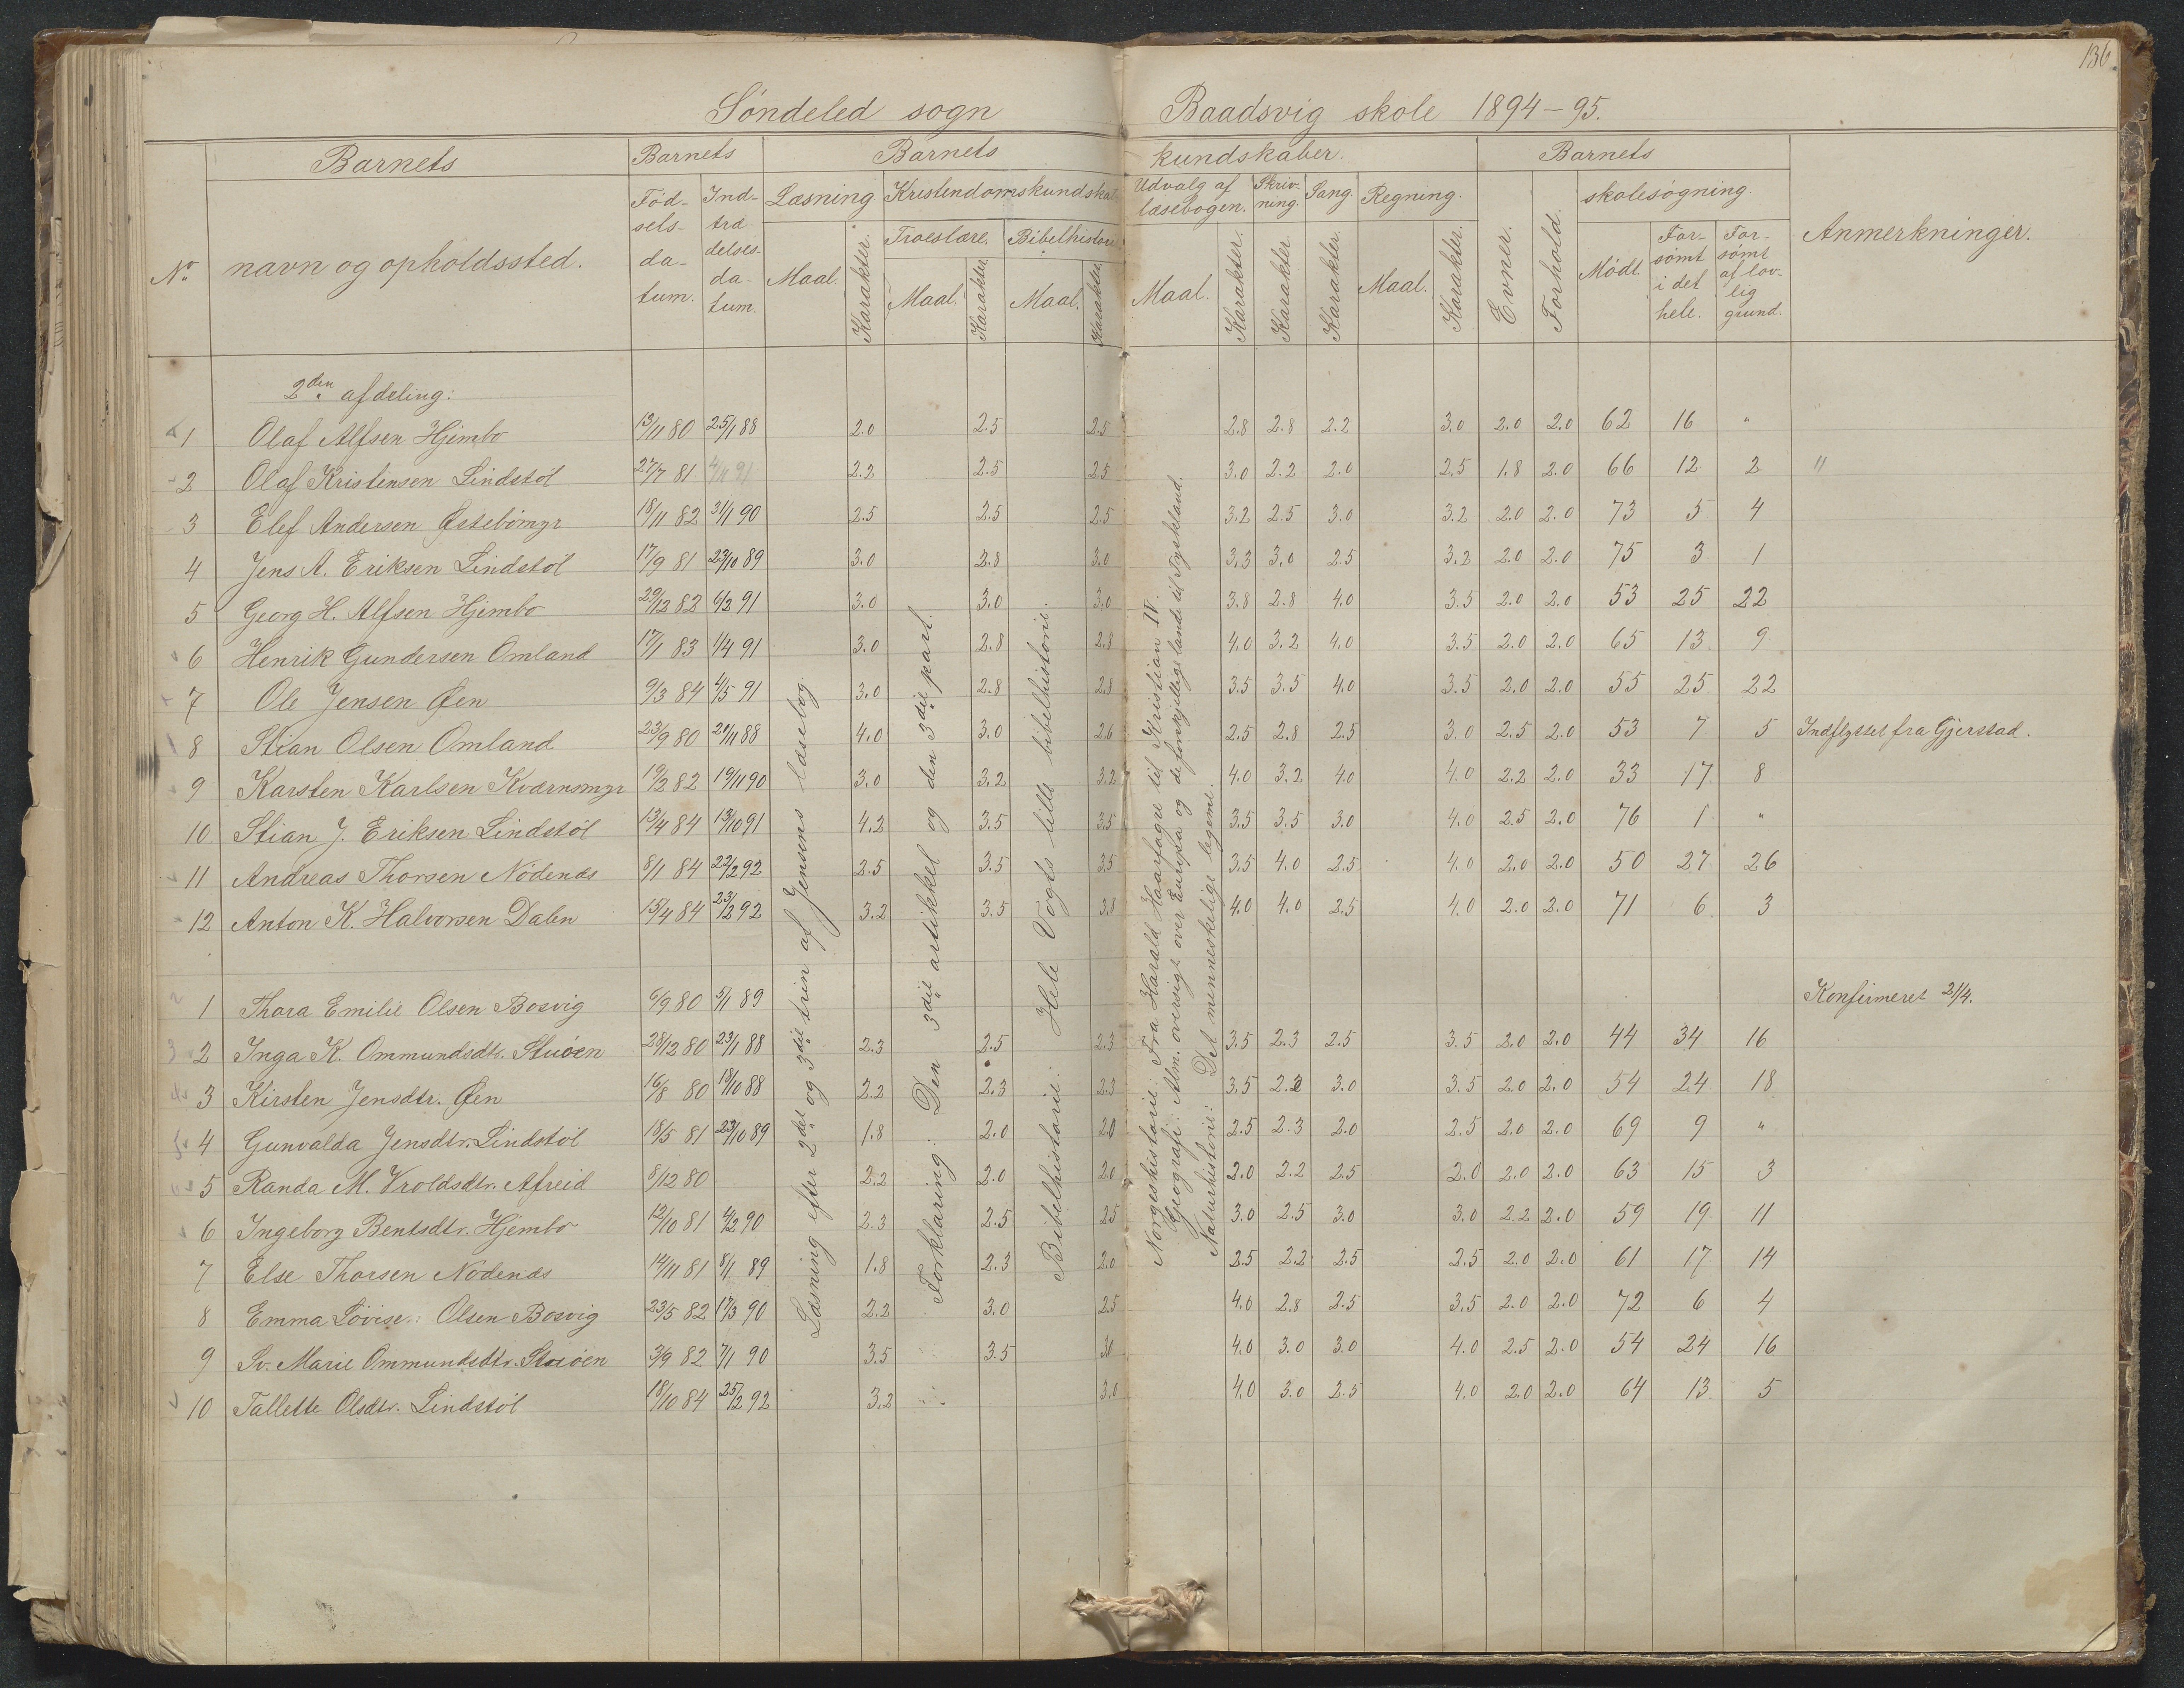 136
Søndeled sogn Baadsvig skole 1894-95.
Barnets Barnets Barnets kundskaber. Barnets
No navn og opholdssted. Fød-sels-da-tum. Ind-træ-delses-da-tum. Læsning. Kristendomskundskab Udvalg af læsebogen. Skriv-ning. Sang. Regning. Evner. Forhold. skolesøgning. Anmerkninger.
Troeslære. Bibelhistorie
Maal. Karakter. Maal. Karakter. Maal. Karakter. Maal. Karakter. Karakter. Karakter. Maal. Karakter. Mødt. For-sømt i det hele. For-sømt af lov-lig grund.
2den afdeling:
1 Olaf Alfsen Hjembo 13/11 80 25/1 88 2.0 2.5 2.5 2.8 2.8 2.2 3.0 2.0 2.0 62 16 "
2 Olaf Kristensen Lindstøl 27/7 81 2.2 2.5 2.5 3.0 2.2 2.0 2.5 1.8 2.0 66 12 2 "
3 Elef Andersen Østebømyr 18/11 82 31/1 90 2.5 2.5 2.5 3.2 2.5 3.0 3.2 2.0 2.0 73 5 4
4 Jens A. Eriksen Lindstøl 17/9 81 23/10 89 3.0 2.8 3.0 3,3 3,0 2.5 3,2 2.0 2.0 75 3 1
5 Georg H. Alfsen Hjembo 29/12 82 6/2 91 3.0 3.0 3.0 3.8 2.8 4.0 3.5 2.0 2.0 53 25 22
6 Henrik Gundersen Omland 17/1 83 1/4 91 3.0 2.8 2.8 4.0 3.2 4.0 3.5 2.0 2.0 65 13 9
7 Ole Jensen Øen 9/3 84 4/5 91 3.0 2.8 2.8 3.5 3.5 4.0 3.5 2.0 2.0 55 25 22
8 Stian Olsen Omland 23/9 80 20/11 88 4.0 3.0 2.6 2.5 2.8 2.5 3.0 2.5 2.0 53 7 5 Indflyttet fra Gjerstad.
9 Karsten Karlsen Kværnsmyr 19/2 82 19/11 90 3.0 3.2 3.2 4.0 3.2 4.0 4.0 2.2 2.0 33 17 8
10 Stian J. Eriksen Lindstøl 13/4 84 13/10 91 4.2 3.5 3.5 3.5 3.5 3.0 4.0 2.5 2.0 76 1 "
11 Andreas Thorsen Nødenæs 8/1 84 22/2 92 2.5 3.5 3.5 3.5 4.0 2.5 4.0 2.0 2.0 50 27 26
12 Anton K. Halvorsen Dalen 15/4 84 23/2 92 3.2 3.5 3.8 4.0 4.0 2.5 4.0 2.0 2.0 71 6 3
1 Thora Emilie Olsen Bosvig 6/9 80 5/1 89 Konfirmeret 21/4.
2 Inga K. Ommundsdtr. Stuøen 28/12 80 23/1 88 2.3 2.5 2.3 3.5 2.3 2.5 3.5 2.0 2.0 44 34 16
3 Kirsten Jensdtr. Øen 16/8 80 18/10 88 2.2 2.3 2.3 3.5 2.2 3.0 3.5 2.0 2.0 54 24 18
4 Gunvalda Jensdtr. Lindstøl 18/5 81 23/10 89 1.8 2.0 2.0 2.5 2.3 2.0 2.5 2.0 2.0 69 9 "
5 Randa M. Vroldsdtr. Afreid 8/12 80 2.2 2.0 2.0 2.0 2.2 2.5 2.0 2.0 2.0 63 15 3
6 Ingeborg Bentsdtr. Hjembo 12/10 81 4/2 90 2.3 2.5 2.5 3.0 2.5 3.0 3.0 2.2 2.0 59 19 11
7 Else Thorsen Nødenæs 14/11 81 8/1 89 1.8 2.3 2.0 2.5 2.2 2.5 2.5 2.0 2.0 61 17 14
8 Emma Lovise: Olsen Bosvig 23/5 82 17/3 90 2.2 3.0 2.5 4.0 2.8 2.5 3.5 2.0 2.0 72 6 4
9 Sv. Marie Ommundsdtr. Stuøen 3/9 82 7/1 90 3.5 3.5 3.0 4.0 3.0 3.0 4.0 2.5 2.0 54 24 16
10 Tallette Olsdtr. Lindstøl 18/10 84 25/2 92 3.2 3.0 4.0 3.0 2.5 4.0 2.0 2.0 64 13 5
Læsning efter 2det og 3die trin af Jensens læsebog.
Forklaring: Den 3die artikkel og den 3die part.
Bibelhistorie: Hele Vogts lille bibelhistorie.
Norgeshistorie: Fra Harald Haarfagre til Kristian IV.
Geografi: Alm. oversigt over Europa og de forskjellige lande til Tyskland.
Naturhistorie: Det menneskelige legeme.